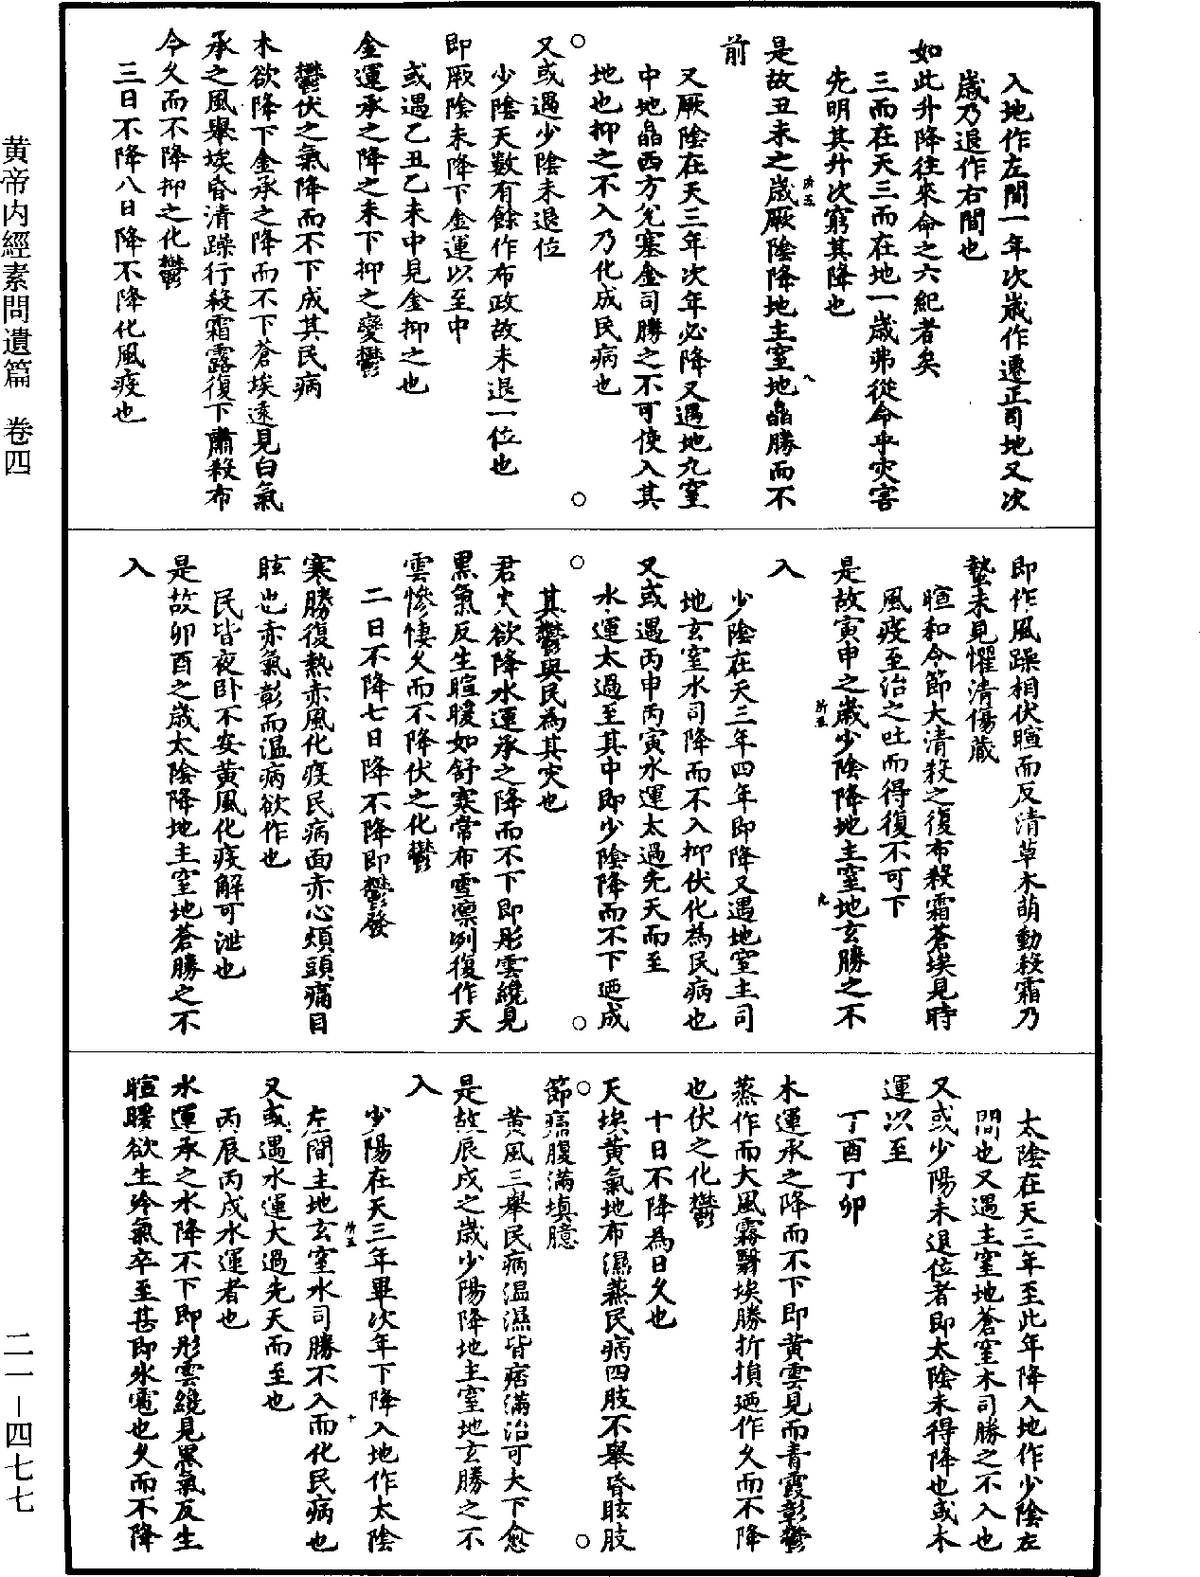 入地作左間一年次歲作遷正司地又次
歲乃退作右間也
如此升降往來命之六紀者矣
三而在天三而在地一歲弗從命乎灾害
先明其升次窮其降也
是故丑未之歲厥陰降地主窒地皛勝而不
前
又厥陰在天三年次年必降又遇地九窒
中地皛西方兌塞金司勝之不可使入其
地也抑之不入乃化成民病也
又或遇少陰未退位
少陰天數有餘作布政故未退一位也
即厥陰未降下金運以至中
或遇乙丑乙未中見金抑之也
金運承之降之未下抑之變鬱
鬱伏之氣降而不下成其民病
木欲降下金承之降而不下蒼埃遠見白氣
承之風舉埃昏清躁行殺霜露復下肅殺布
令久而不降抑之化鬱
三日不降八日降不降化風疫也
即作風躁相伏暄而反清草木萌動殺霜乃
蟄未見懼清傷藏
暄和令節大清殺之復布殺霜蒼埃見時
風疫至治之吐而得復不可下
是故寅申之歲少陰降地主窒地玄勝之不
入
少陰在天三年四年即降又遇地窒主司
地玄窒水司降而不入抑伏化為民病也
又或遇丙申丙寅水運太過先天而至
水運太過至其中即少陰降而不下迺成
其鬱與民為其灾也
君火欲降水運承之降而不下即彤雲纔見
黑氣反生暄暖如舒寒常布雪凛冽復作天
雲慘悽久而不降伏之化鬱
二日不降七日降不降即鬱發
寒勝復熱赤風化疫民病面赤心煩頭痛目
眩也赤氣彰而温病欲作也
民皆夜卧不安黄風化疫解可泄也
是故卯酉之歲太陰降地主窒地蒼勝之不
入
太陰在天三年至此年降入地作少陰左
間也又遇主窒地蒼窒木司勝之不入也
又或少陽未退位者即太陰未得降也或木
運以至
丁酉丁卯
木運承之降而不下即黄雲見而青霞彰鬱
蒸作而大風霧翳埃勝折損迺作久而不降
也伏之化鬱
十日不降為日久也
天埃黄氣地布濕蒸民病四肢不舉昏眩肢
節痛腹滿填臆
黄風三舉民病温濕皆痞滿治可大下愈
是故辰戌之歲少陽降地主窒地玄勝之不
入
少陽在天三年畢次年下降入地作太陰
左間主地玄窒水司勝不入而化民病也
又或遇水運大過先天而至也
丙辰丙戌水運者也
水運承之水降不下即彤雲纔見黑氣反生
暄暖欲生冷氣卒至甚即氷雹也久而不降
黄帝内經素問遺篇 卷四
二一—四七七